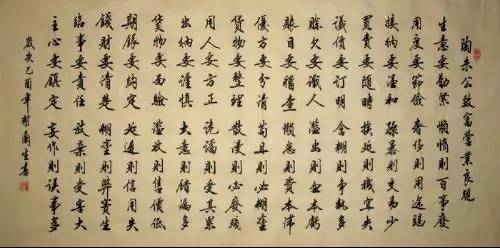 陶朱公致富營業良規
生意要勤緊 懶惰則百事廢
用度要節儉 奢侈則用途竭
接納要溫和 躁暴則交易少
買賣要隨時 挨延則機宜失
議價要訂明 含糊則爭執多
賒欠要識人 濫出則血本虧
賬目要稽查 懶怠則資本滯
優方要分清 苟且則必糊塗
貨物要整理 散漫則必廢殘
用人要方正 詭譎則受其累
出納要謹慎 大意則錯漏多
貨物要面驗 濫放則售價低
期限要約定 延遲則信用失
錢財要清楚 糊塗則弊竇生
臨事要責任 放棄則受害大
主心要鎮定 妄作則誤事多
歲次己酉年 生書